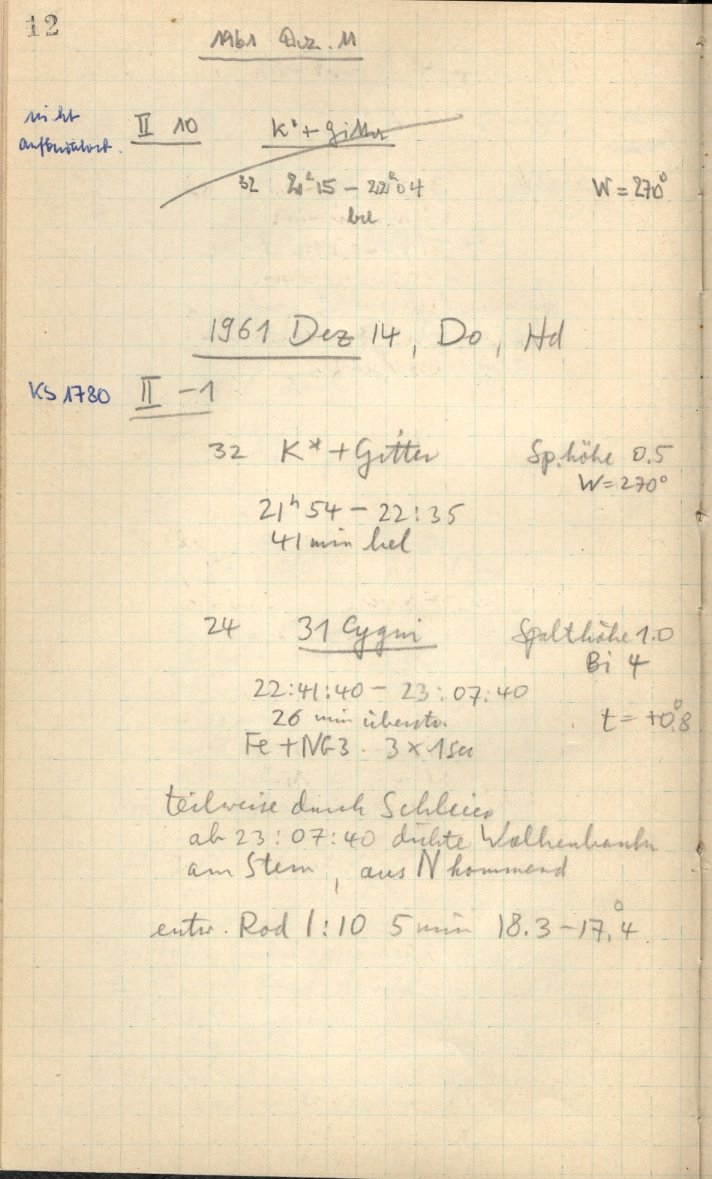 12
1961 Dez. 11
nicht
aufbewahrt.
II 10 K* + Gitter
32 21h15 – 22h04 W = 270°
bel
1961 Dez 14, Do, Hd
KS 1780 II – 1
32 K* + Gitter Sp.höhe 0.5
W = 270°
21h54 – 22:35
41 min bel
24 31 Cygni Spalthöhe 1.0
Bi 4
22:41:40 – 23:07:40
26 min t = +0.°8
Fe + NG3 3 × 1 sec
teilweise durch Schleier
ab 23:07:40 dichte Wolkenbank
am Stern, aus N kommend
entw. Rod 1:10 5 min 18.3 – 17.°4